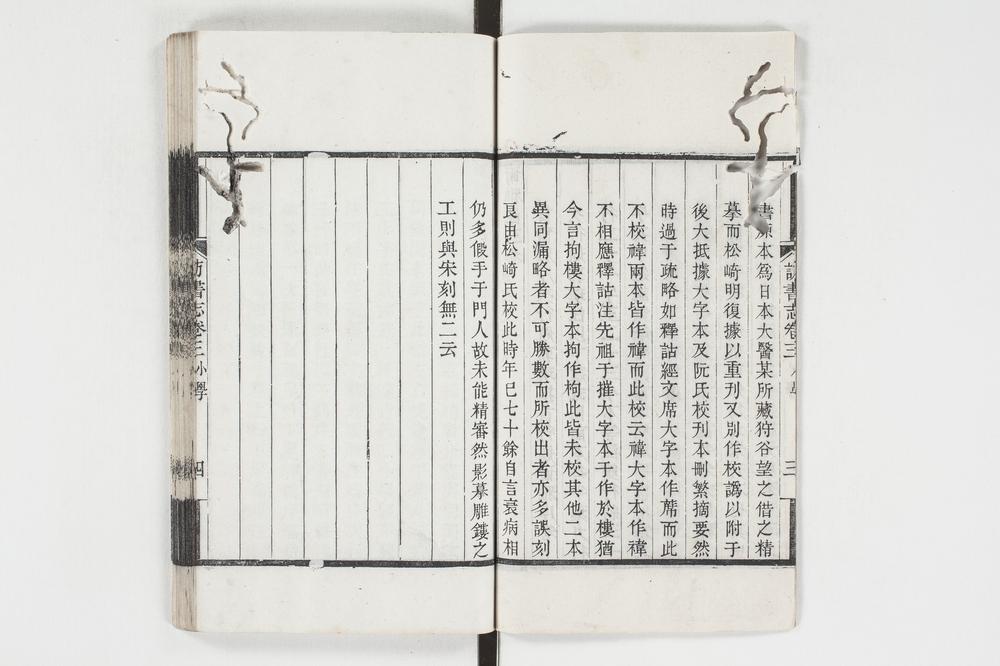 書原本爲日本大醫某所藏狩谷望之借之精
摹而松崎明復據以重刋又別作校譌以附于
後大抵據大字本及阮氏校刋本刪繁摘要然
時過于疏略如釋詁經文席大字本作蓆而此
不校禕兩本皆作禕而此校云禕大字本作褘
不相應釋詁注先祖于摧大字本于作於樓猶
今言拘樓大字本拘作枸此皆未校其他二本
異同漏略者不可勝數而所校出者亦多誤刻
良由松崎氏校此時年已七十餘自言衰病相
仍多假手于門人故未能精審然影摹雕鏤之
工則與宋刻無二云
訪書志卷三 小學
三
訪書志卷三 小學
四